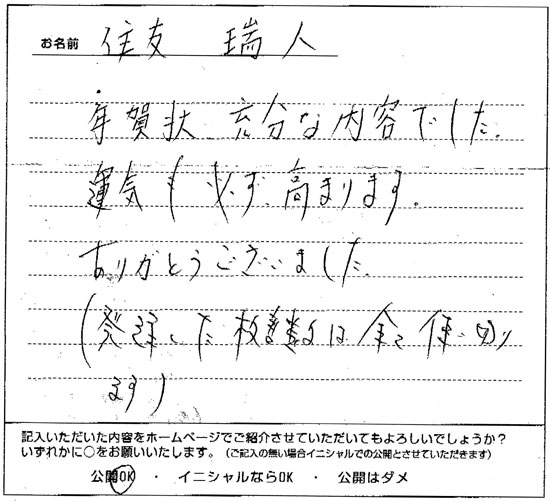 お名前 住友 瑞人
年賀状 充分な内容でした.
運気も必ず、高まります.
ありがとうございました.
(発注した枚数は全て使い切り
ます)
記入いただいた内容をホームページでご紹介させていただいてもよろしいでしょうか?
いずれかに○をお願いいたします。(ご記入の無い場合イニシャルでの公開とさせていただきます)
公開OK ・ イニシャルならOK ・ 公開はダメ